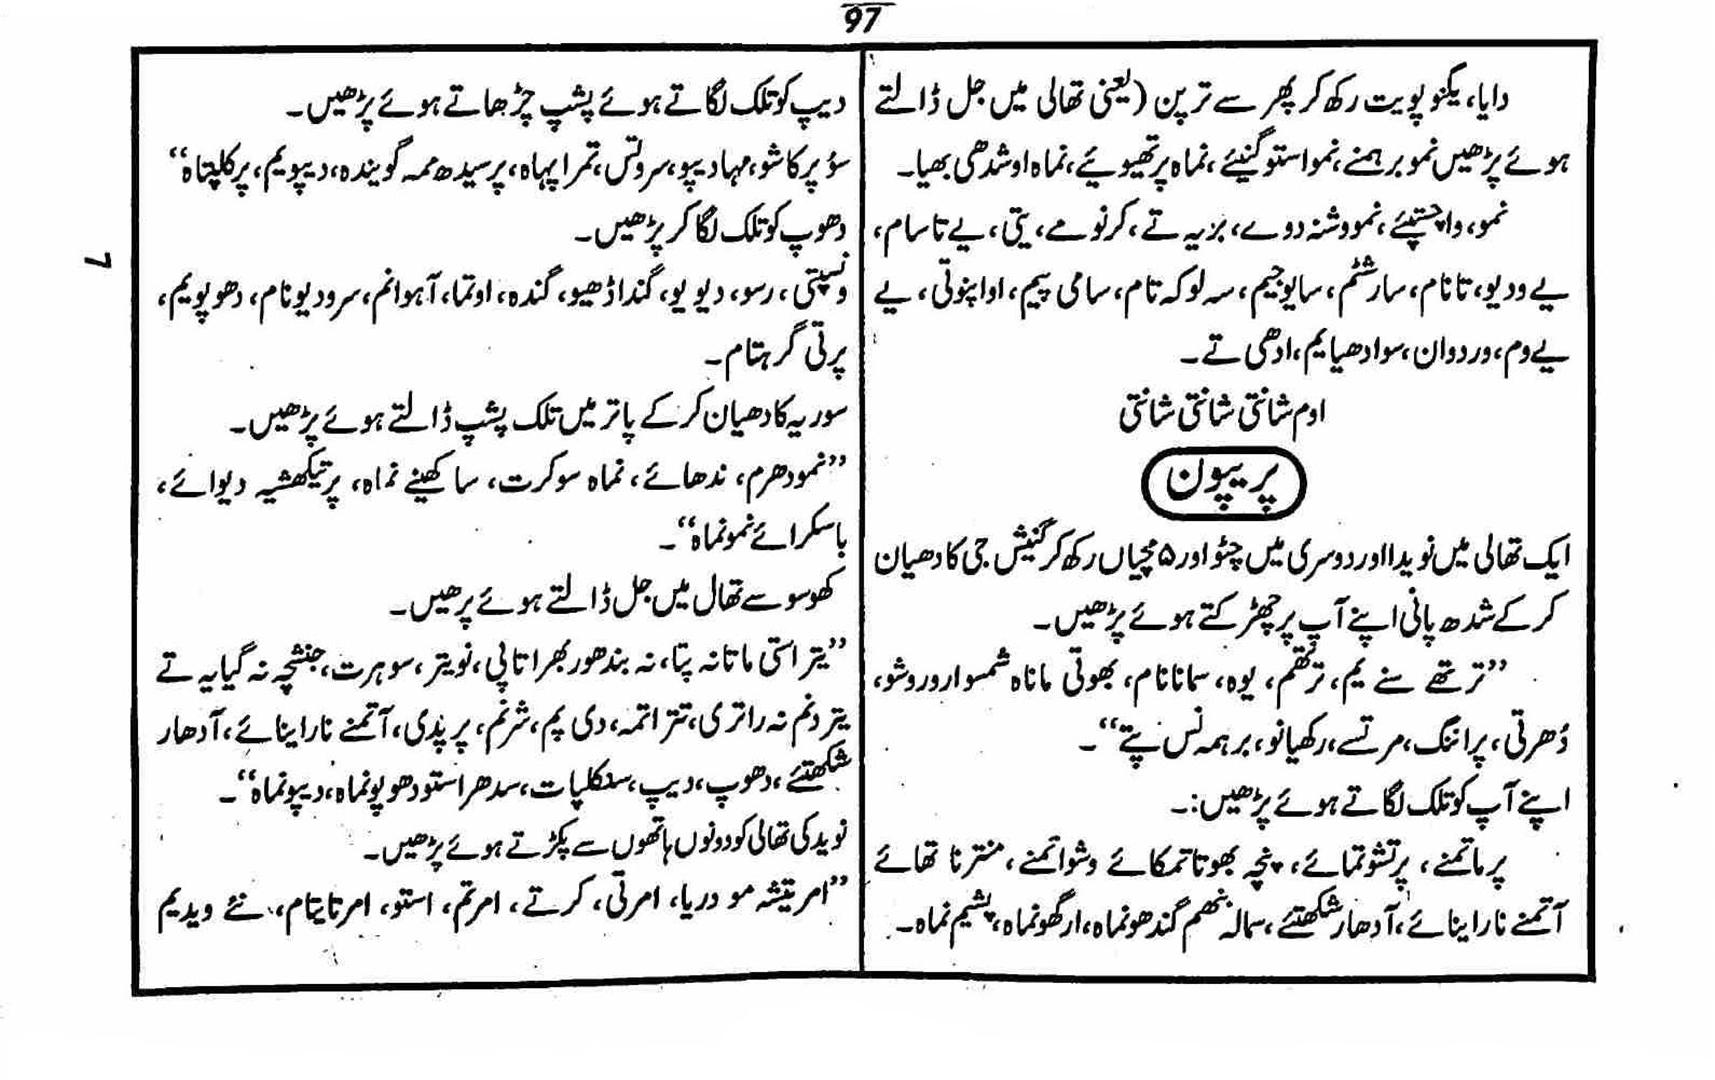 97
دایا، یگنوپویت رکھ کر پھر سے ترپن (یعنی تھالی میں جل ڈالتے
ہوئے پڑھیں نمو برہمنے، نمو استو گنیئے، نماہ پرتھیویئے، نماہ اوشدھی بھیا۔
نمو، واچسپتئے، نمو وشنہ دوے، بزیہ تے، کرنومے، یتی، بے تاسام،
بے ودیو، تانام، سارشٹم، سایوجیم، سہ لوکہ تام، سامی پیم، اواپنوتی، بے
بے وم، وردوان، سوادھیایم، ادھی تے۔
اوم شانتی شانتی شانتی
پریپون
ایک تھالی میں نویدا اور دوسری میں چٹو اور ۵ مچیاں رکھ کر گنیش جی کا دھیان
کر کے شدھ پانی اپنے آپ پر چھڑکتے ہوئے پڑھیں۔
”ترتھے سنے یم، ترتھم، یوہ، سمانانام، بھوتی ماناہ شمسوار وروشو،
دُھرتی، پراننگ، مرتسے، رکھیانو، برہمہ نس پتے“۔
اپنے آپ کو تلک لگاتے ہوئے پڑھیں:۔
پرماتمنے، پرتشوتمائے، پنچہ بھوتاتمکائے وشواتمنے، منترنا تھائے
آتمنے نارایںائے، آدھار شکھتئے، سمالہ بنھم گندھونماہ، ارگھونماہ، پشیم نماہ۔
دیپ کو تلک لگاتے ہوئے پشپ چڑھاتے ہوئے پڑھیں۔
سؤپرکاشو، مہادیپو، سروتس، تمراپہاہ، پرسیدھ ممہ گویندہ، دیپویم، پرکلپتاہ“
دھوپ کو تلک لگا کر پڑھیں۔
ونسپتی، رسو، دیویو، گنداڈھیو، گندہ، اوتما، آہوانم، سرودیونام، دھوپویم،
پرتی گرہتام۔
سوریہ کا دھیان کر کے پاتر میں تلک پشپ ڈالتے ہوئے پڑھیں۔
”نمودھرم، ندھائے، نماہ سوکرت، ساکھینے نماہ، پرتیکھشیہ دیوائے،
باسکرائے نمونماہ“۔
کھوسو سے تھال میں جل ڈالتے ہوئے پرھیں۔
”یتراستی ماتانہ پتا، نہ بندھور بھراتاپی، نویتر، سوہرت، جنشچہ نہ گیایہ تے
یتردنم نہ راتری، تتراتمہ، دی پم، شرنم، پرپدی، آتمنے نارایںائے، آدھار
شکھتئے، دھوپ، دیپ، سنکلپات، سدھراستو دھوپونماہ، دیپونماہ“۔
نوید کی تھالی کو دونوں ہاتھوں سے پکڑتے ہوئے پڑھیں۔
”امریتیشہ مودریا، امرتی، کرتے، امرتم، استو، امرتایتام، نئے ویدیم
7